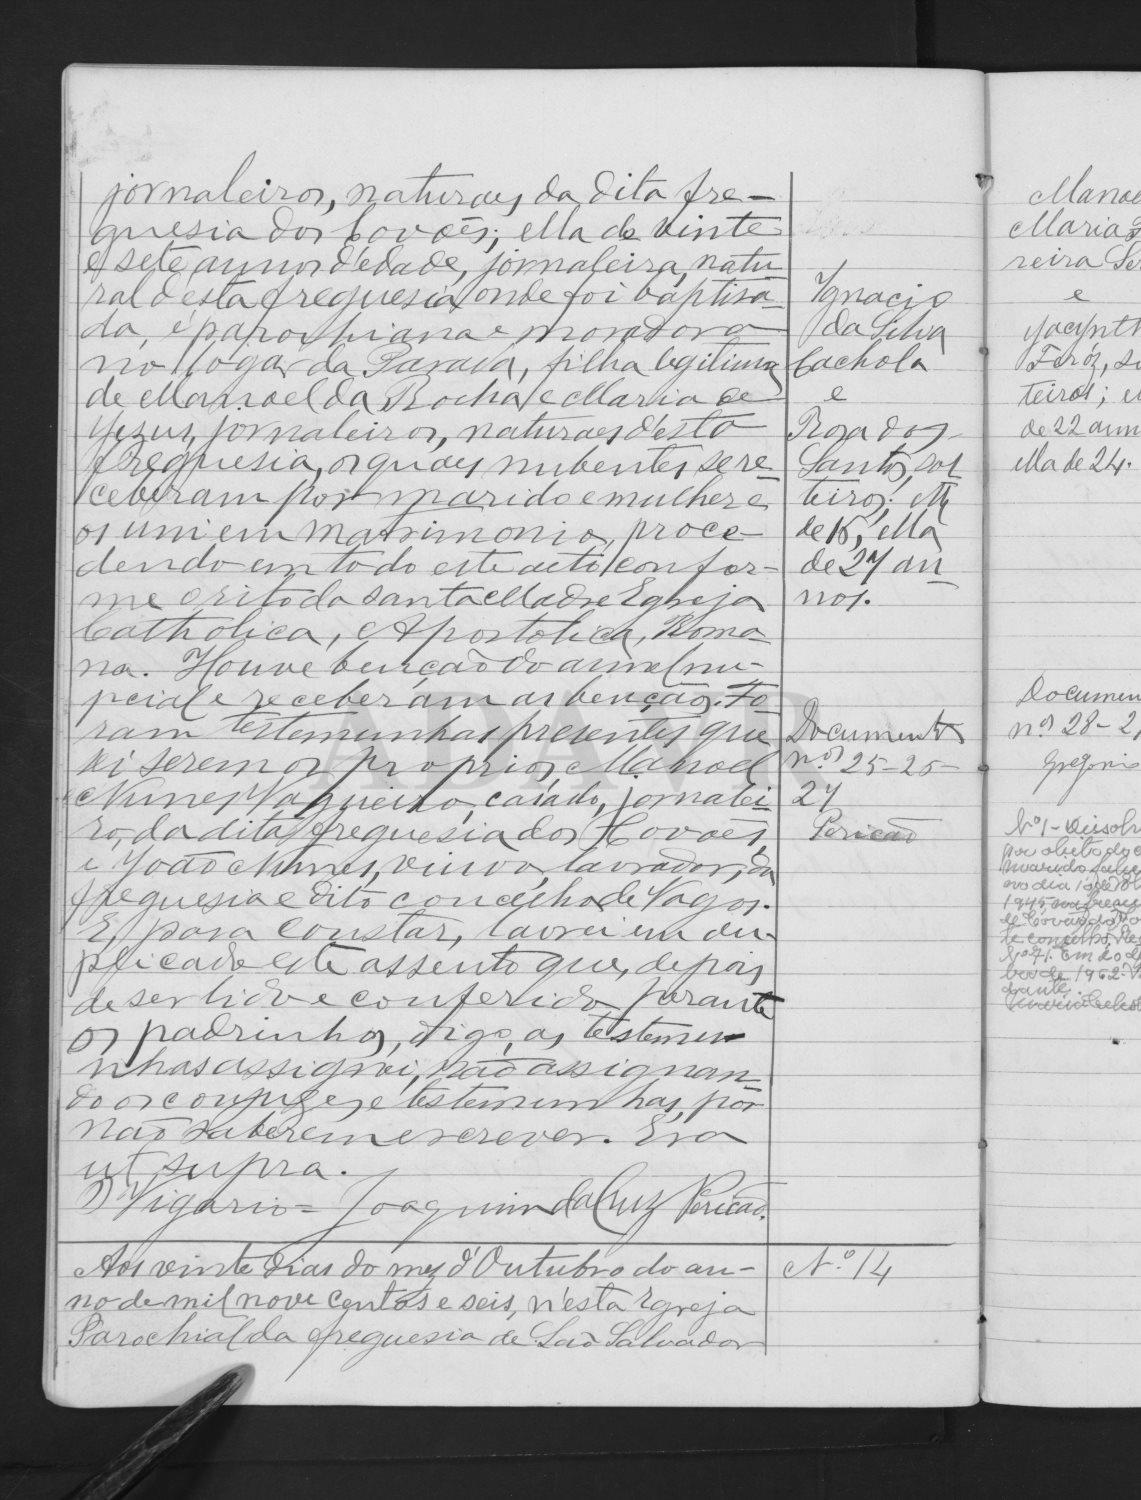 jornaleiros, naturaes da dita fre-
guesia dos Covões; ella de vinte
e sete annos d'edade, jornaleira, natu-
ral d'esta freguesia onde foi baptisa-
da, é parochiana e moradora
no logar da Parada, filha legitima
de Manoel da Rocha e Maria de
Jezus, jornaleiros, naturaes d'esta
freguesia, os quaes nubentes se re-
ceberam por marido e mulher e
os uni em matrimonio, proce-
dendo em todo este acto confor-
me o rito da Santa Madre Egreja
Catholica, Apostolica, Roma-
na. Houve benção do annel nu-
pcial e receberam as benções. Fo-
ram testemunhas presentes que
sei serem os proprios, Manoel
Nunes Vagueiro, casado, jornalei-
ro, da dita freguesia dos Covões,
e João Nunes, viuvo, lavrador, da
freguesia e dito concelho de Vagos.
E, para constar, lavrei em du-
plicado este assento que, depois
de ser lido e conferido perante
os padrinhos, digo, as testemu-
nhas assignei, não assignan-
do os conjuges e testemunhas por
não saberem escrever. Era
ut supra.
O Vigario = Joaquim da Cruz Pericão.
Ignacio
da Silva
Cachola
e
Rosa dos
Santos, sol-
teiros; elle
de 15, ella
de 27 an-
nos.
Documentos
n.os 25-26-
27
Pericão
Aos vinte dias do mez d'Outubro do an-
no de mil nove centos e seis, n'esta Egreja
Parochial da freguesia de São Salvador
N.º 14
Manoe
Maria
reira
e
Jacynth
Feróz, so
teiros; e
de 22 ann
ella de 24.
Documen
n.os 28-2
ADAVR